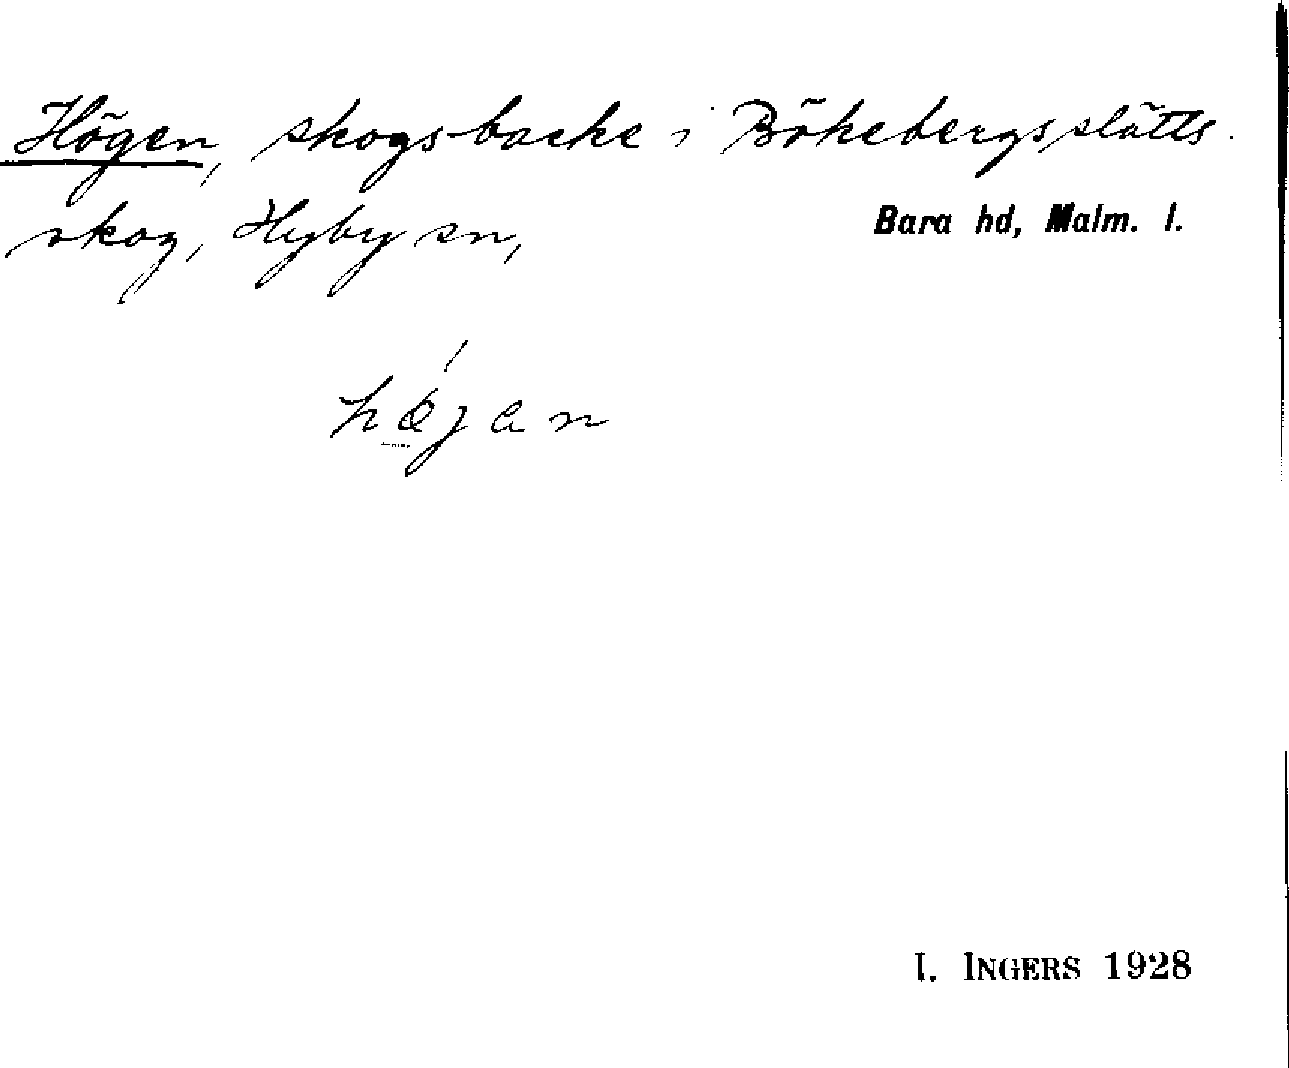 Högen, skogsbacke i Bökebergsslätts
skog, Hyby sn, Bara hd, Malm. l.
I. INGERS 1928